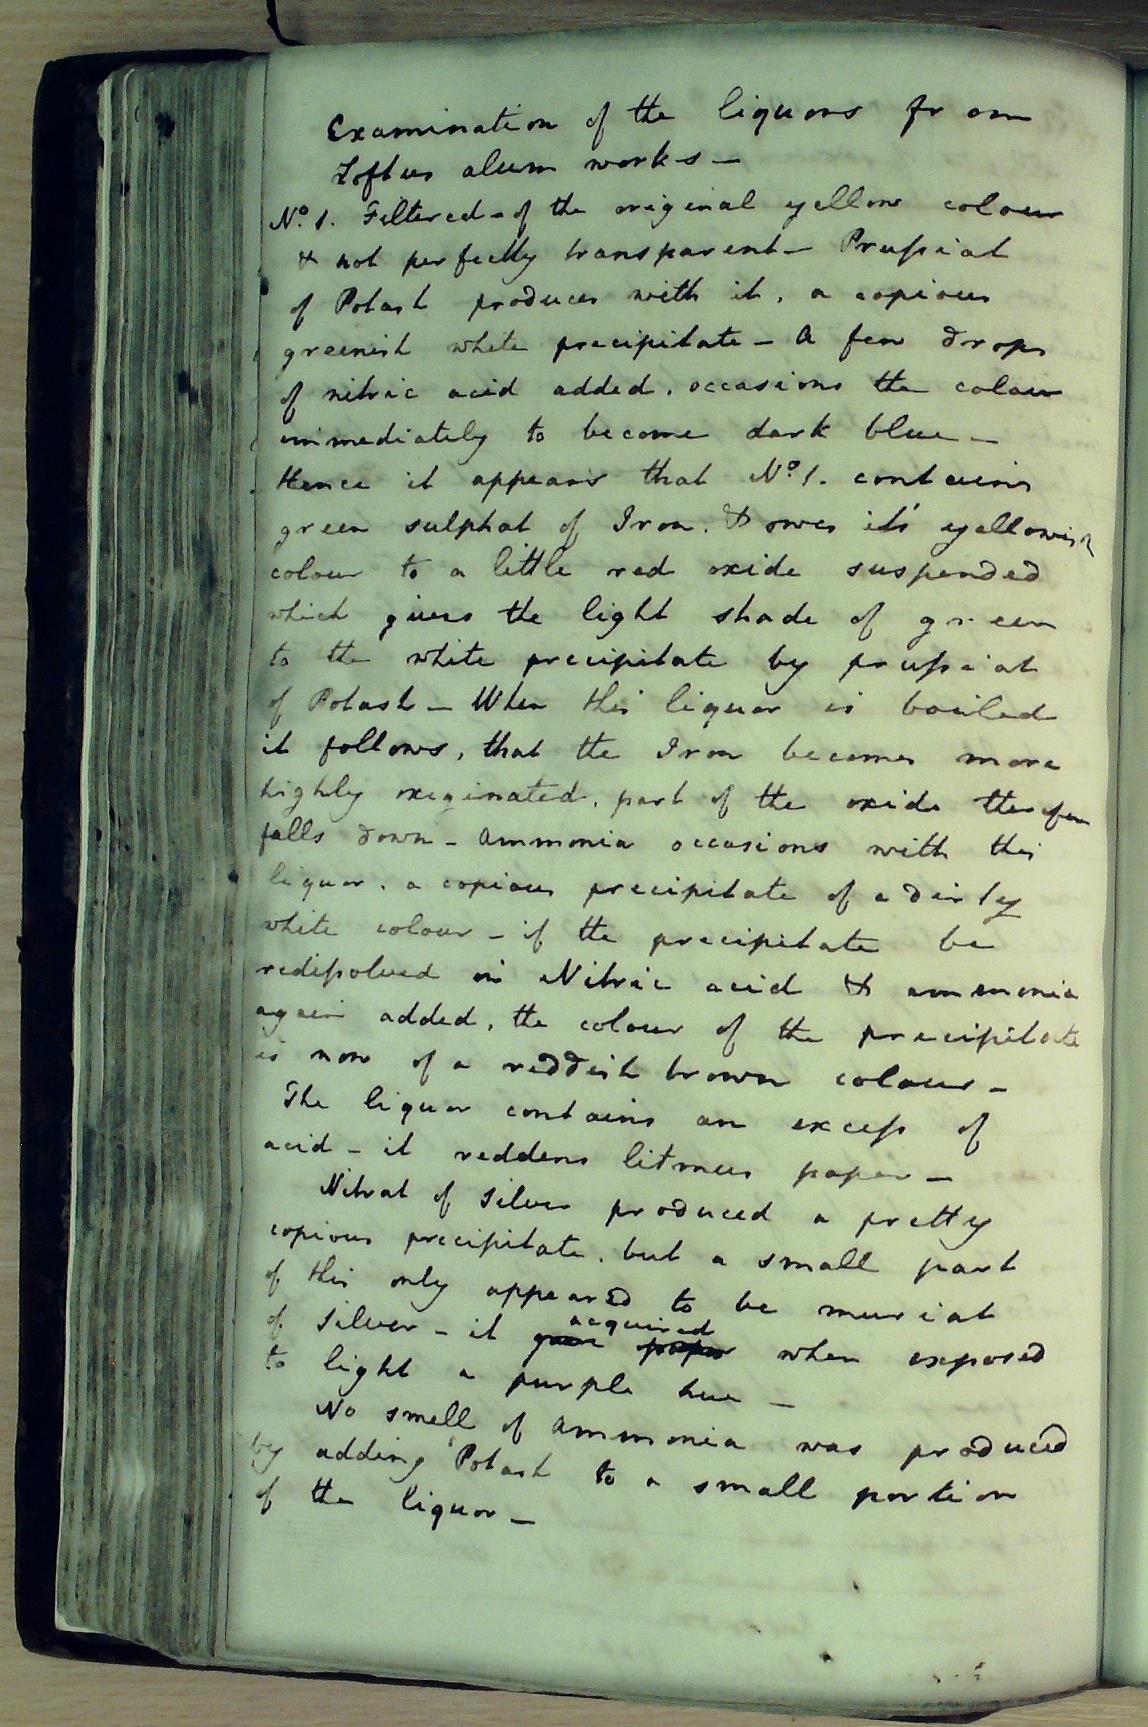 Examination of the liquors from
Loftus alum works —
No. 1. Filtered – of the original yellow colour
& not perfectly transparent – Prussiat
of Potash produces with it, a copious
greenish white precipitate – A few drops
of nitric acid added, occasions the colour
immediately to become dark blue –
Hence it appears that No. 1. contains
green sulphat of Iron. & owes it's yellowish
colour to a little red oxide suspended
which gives the light shade of green
to the white precipitate by prussiat
of Potash – When this liquor is boiled
it follows, that the Iron becomes more
highly oxiginated, part of the oxide therefore
falls down – Ammonia occasions with this
liquor, a copious precipitate of a dirty
white colour – if the precipitate be
redissolved in Nitric acid & ammonia
again added, the colour of the precipitate
is now of a reddish brown colour –
The liquor contains an excess of
acid – it reddens litmus paper –
Nitrat of Silver produced a pretty
copious precipitate, but a small part
of this only appeared to be muriat
of Silver – it acquired when exposed
to light a purple hue –
No smell of Ammonia was produced
by adding Potash to a small portion
of the liquor –